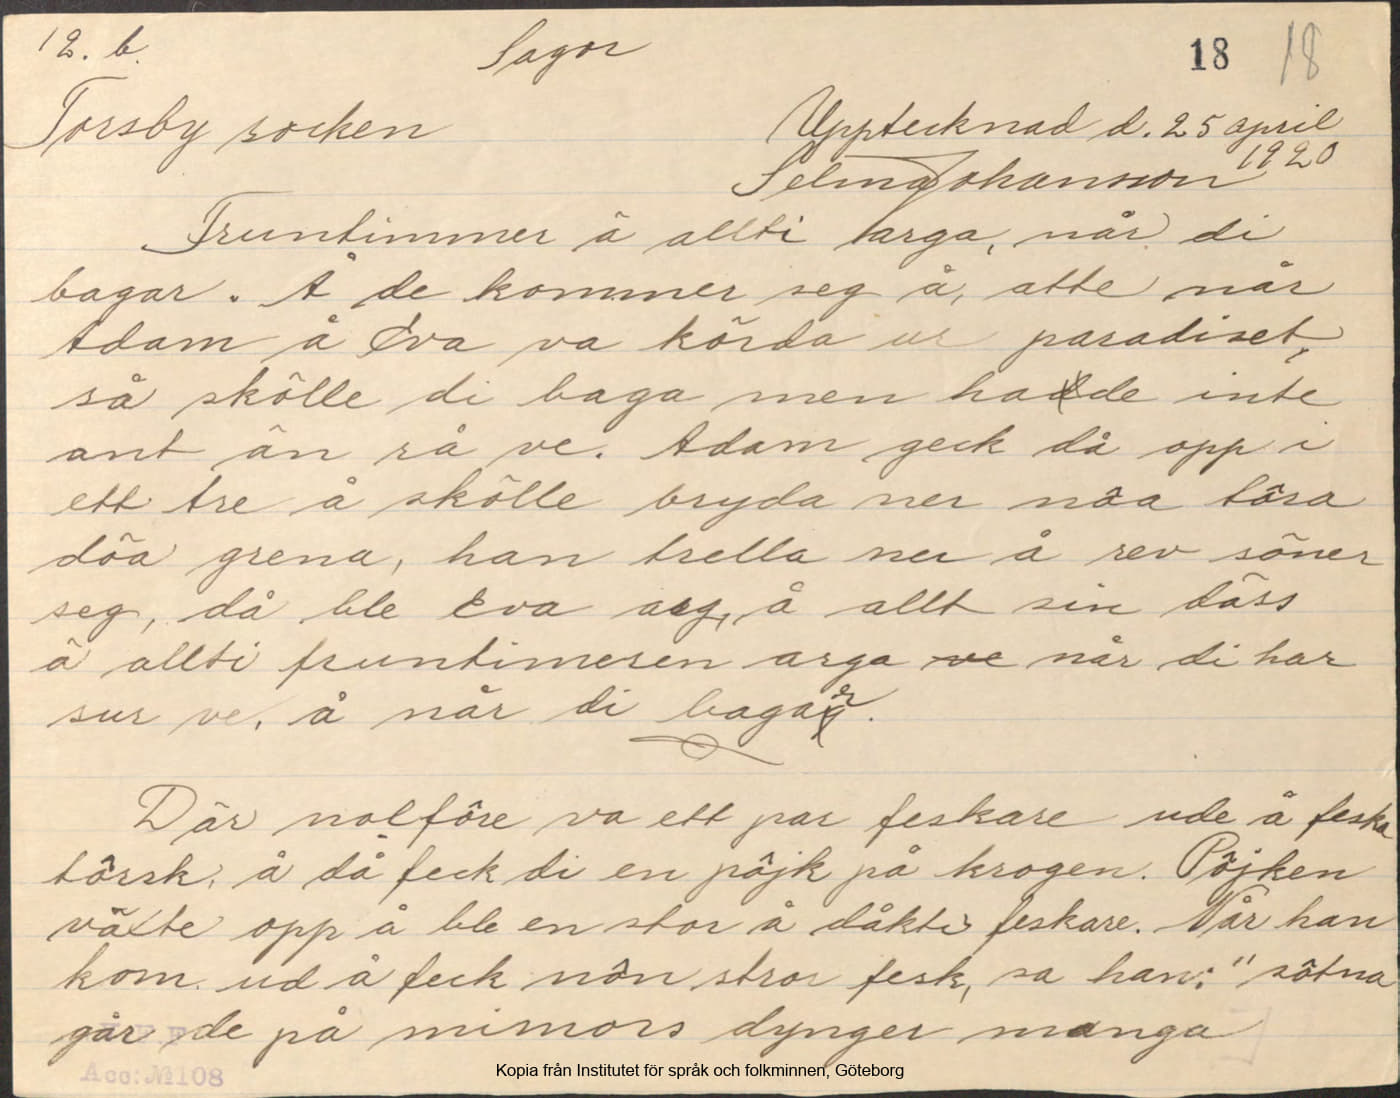 12. b.
Sagor
18 18
Torsby socken
Upptecknad d. 25 april
1920
Selma Johansson
Fruntimmer ä allti arga, når di
bagar. Å de kommer seg å, atte når
Adam å Eva va körda ur paradiset,
så skölle di baga men hadde inte
ant än rå ve. Adam geck då opp i
ett tre å skölle bryda ner nôa tôra
döa grena, han trella ner å rev söner
seg, då ble Eva arg, å allt sin däss
ä allti fruntimeren arga ve når di har
sur ve, å når di bagar.
Där nolfôre va ett par feskare ude å feska
tôrsk, å då feck di en pôjk på krogen. Pôjken
växte opp å ble en stor å dåkti feskare. Når han
kom ud å feck nôn stror fesk, sa han: "sötna
går de på mimors dynger manga
Acc: № 108
Kopia från Institutet för språk och folkminnen, Göteborg